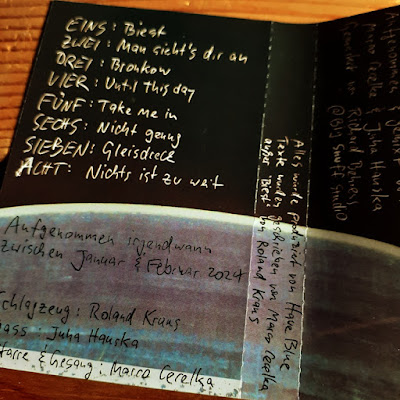 EINS: Biest
ZWEI: Man sieht's dir an
DREI: Bronkow
VIER: Until this day
FÜNF: Take me in
SECHS: Nicht genug
SIEBEN: Gleisdreck
ACHT: Nichts ist zu weit
Aufgenommen irgendwann
zwischen Januar & Februar 2024
Schlagzeug: Roland Kraus
Bass: Juha Hauska
tarre & Gesang: Marco Cerelka
Alles wurde produziert von Have Blue
Texte wurden geschrieben von Marco Cerelka
außer "Biest" by Roland Kraus
Aufgenommen & gemischt
Marco Cerelka & Juha Hauska
Gemastert von Richard
@By Snuff Studio